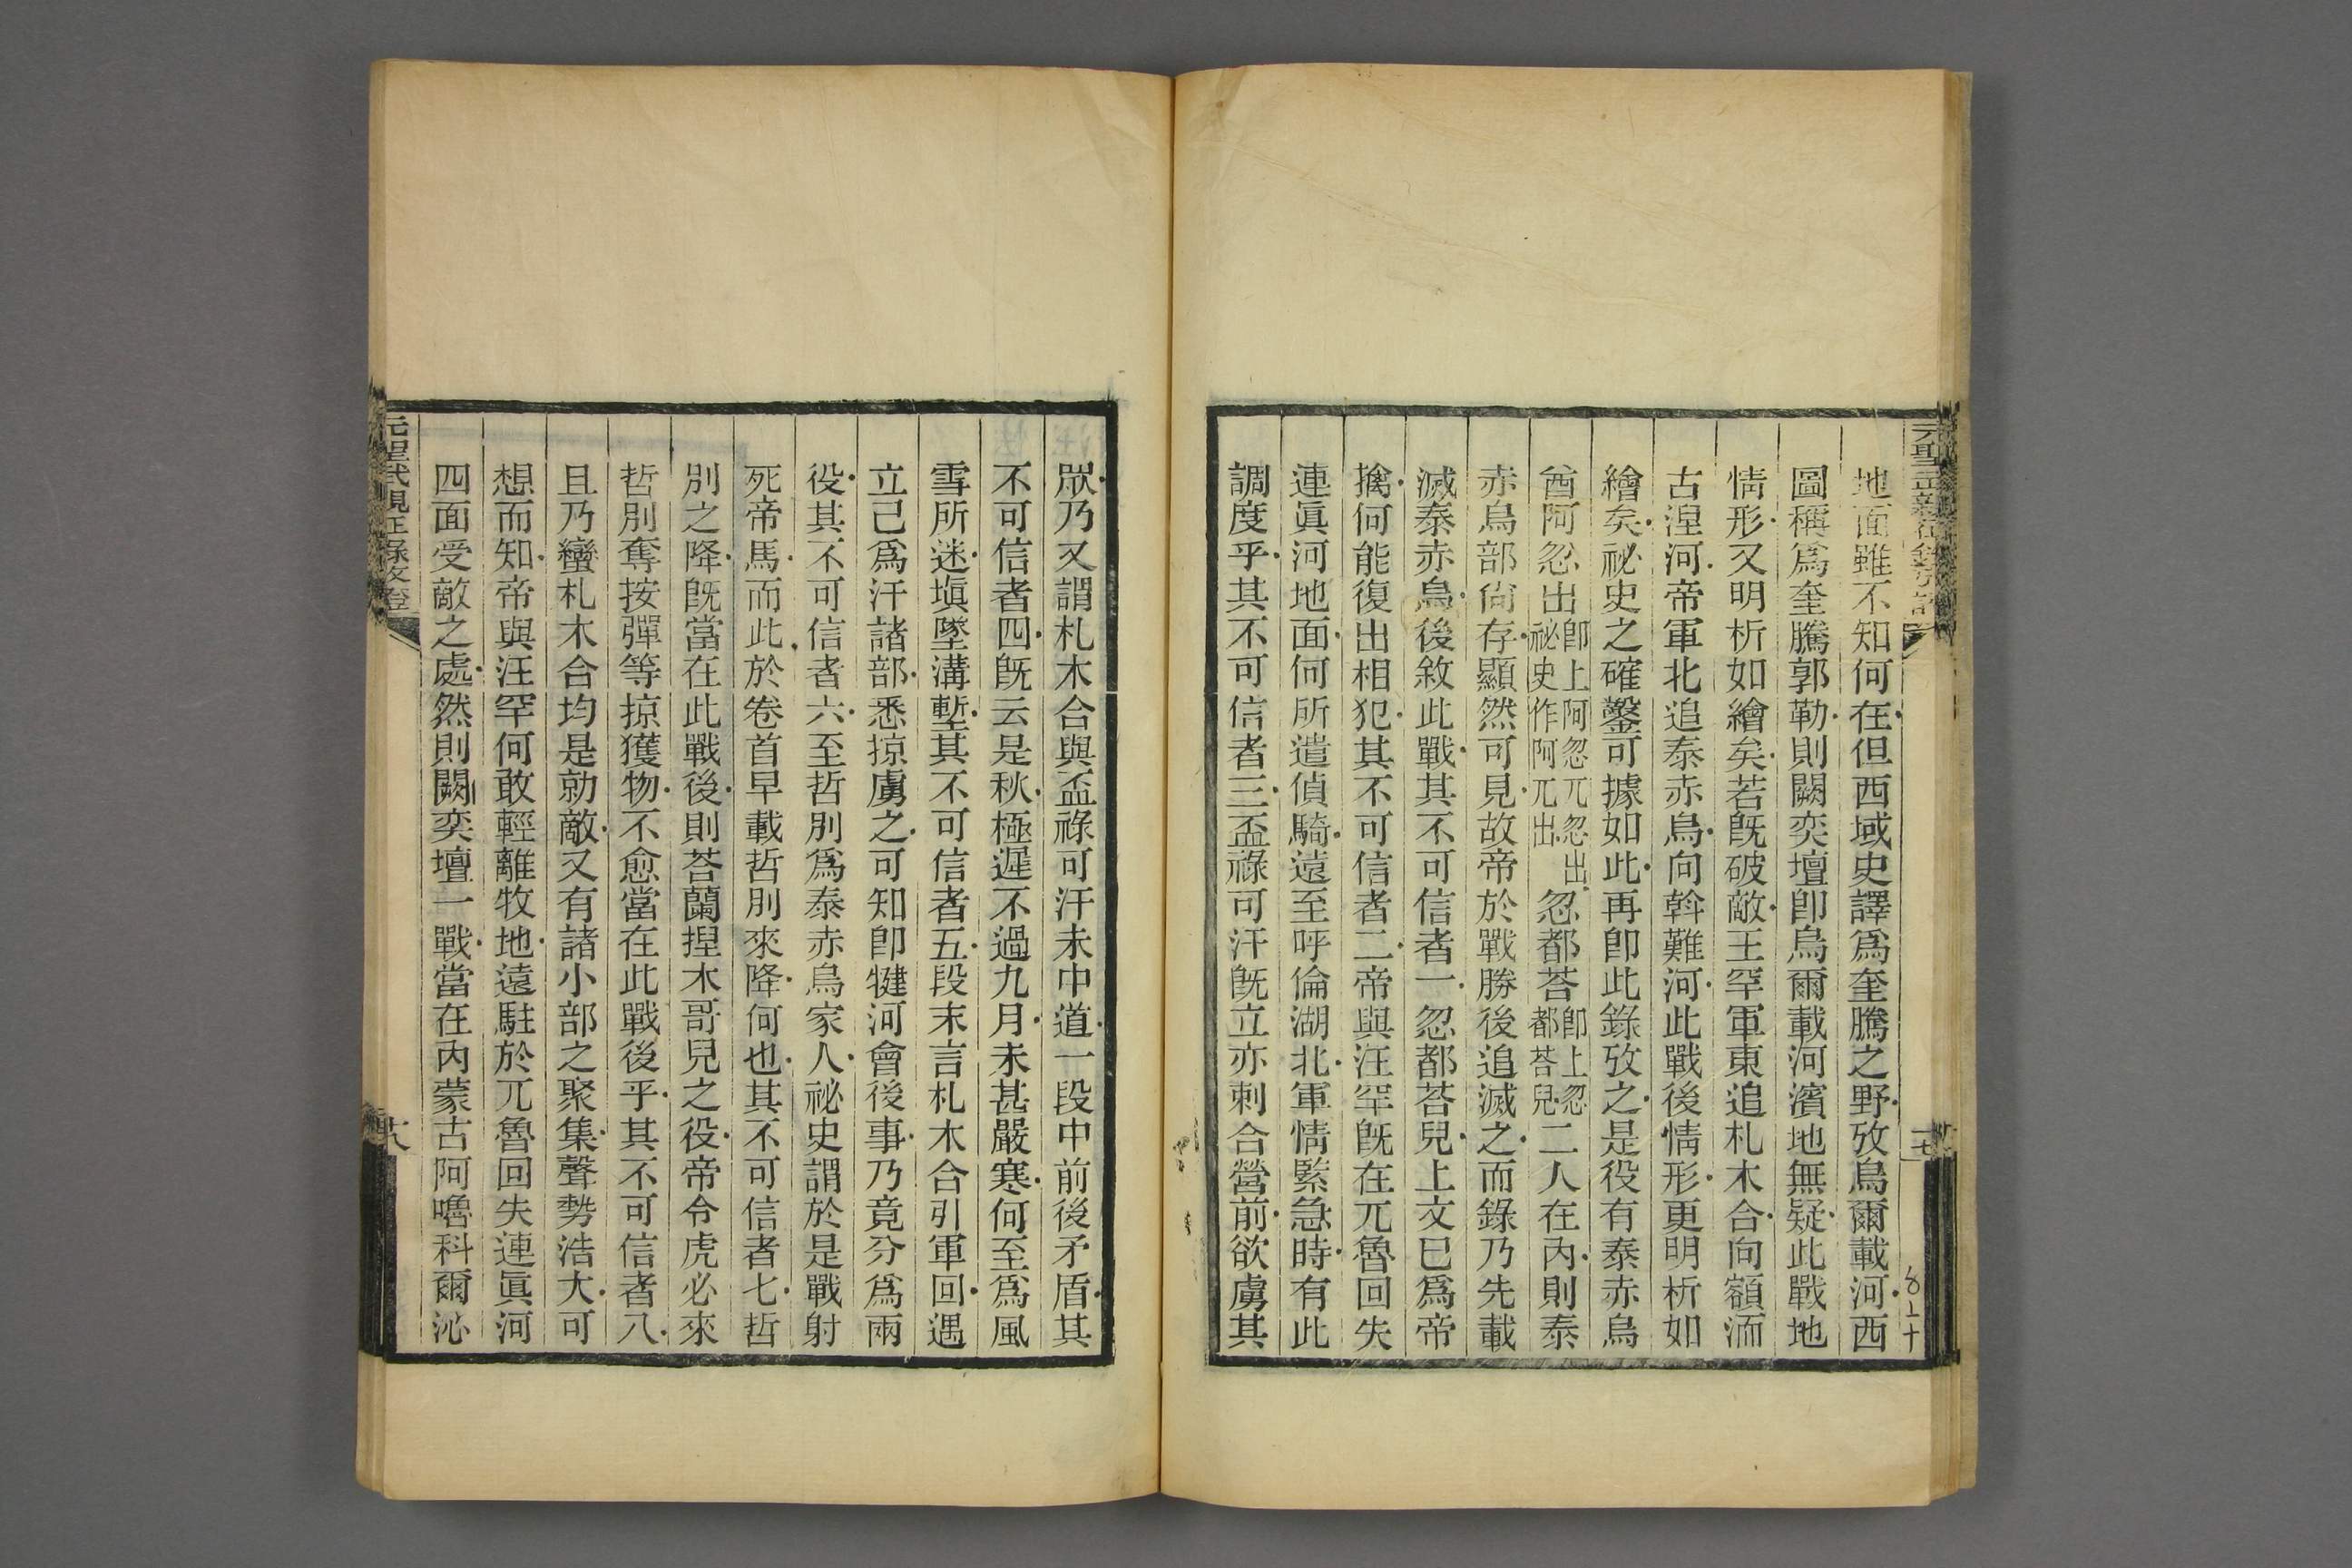 地面雖不知何在但西域史譯爲奎騰之野攷烏爾載河西
圖稱爲奎騰郭勒則闕奕壇卽烏爾載河濱地無疑此戰地
情形又明析如繪矣若旣破敵王罕軍東追札木合向額洏
古涅河帝軍北追泰赤烏向斡難河此戰後情形更明析如
繪矣祕史之確鑿可據如此再卽此錄攷之是役有泰赤烏
酋阿忽出卽上阿忽兀忽出祕史作阿兀出忽都荅卽上忽都荅兒二人在內則泰
赤烏部尙存顯然可見故帝於戰勝後追滅之而錄乃先載
滅泰赤烏後敘此戰其不可信者一忽都荅兒上文已爲帝
擒何能復出相犯其不可信者二帝與汪罕旣在兀魯回失
連眞河地面何所遣偵騎遠至呼倫湖北軍情緊急時有此
調度乎其不可信者三盃祿可汗旣立亦刺合營前欲虜其
眾乃又謂札木合與盃祿可汗未中道一段中前後矛盾其
不可信者四旣云是秋極遲不過九月未甚嚴寒何至爲風
雪所迷塡墜溝塹其不可信者五段末言札木合引軍回遇
立己爲汗諸部悉掠虜之可知卽犍河會後事乃竟分爲兩
役其不可信者六至哲別爲泰赤烏家人祕史謂於是戰射
死帝馬而此於卷首早載哲別來降何也其不可信者七哲
別之降旣當在此戰後則荅蘭揑木哥兒之役帝令虎必來
哲別奪按彈等掠獲物不愈當在此戰後乎其不可信者八
且乃蠻札木合均是勍敵又有諸小部之聚集聲勢浩大可
想而知帝與汪罕何敢輕離牧地遠駐於兀魯回失連眞河
四面受敵之處然則闕奕壇一戰當在內蒙古阿嚕科爾沁